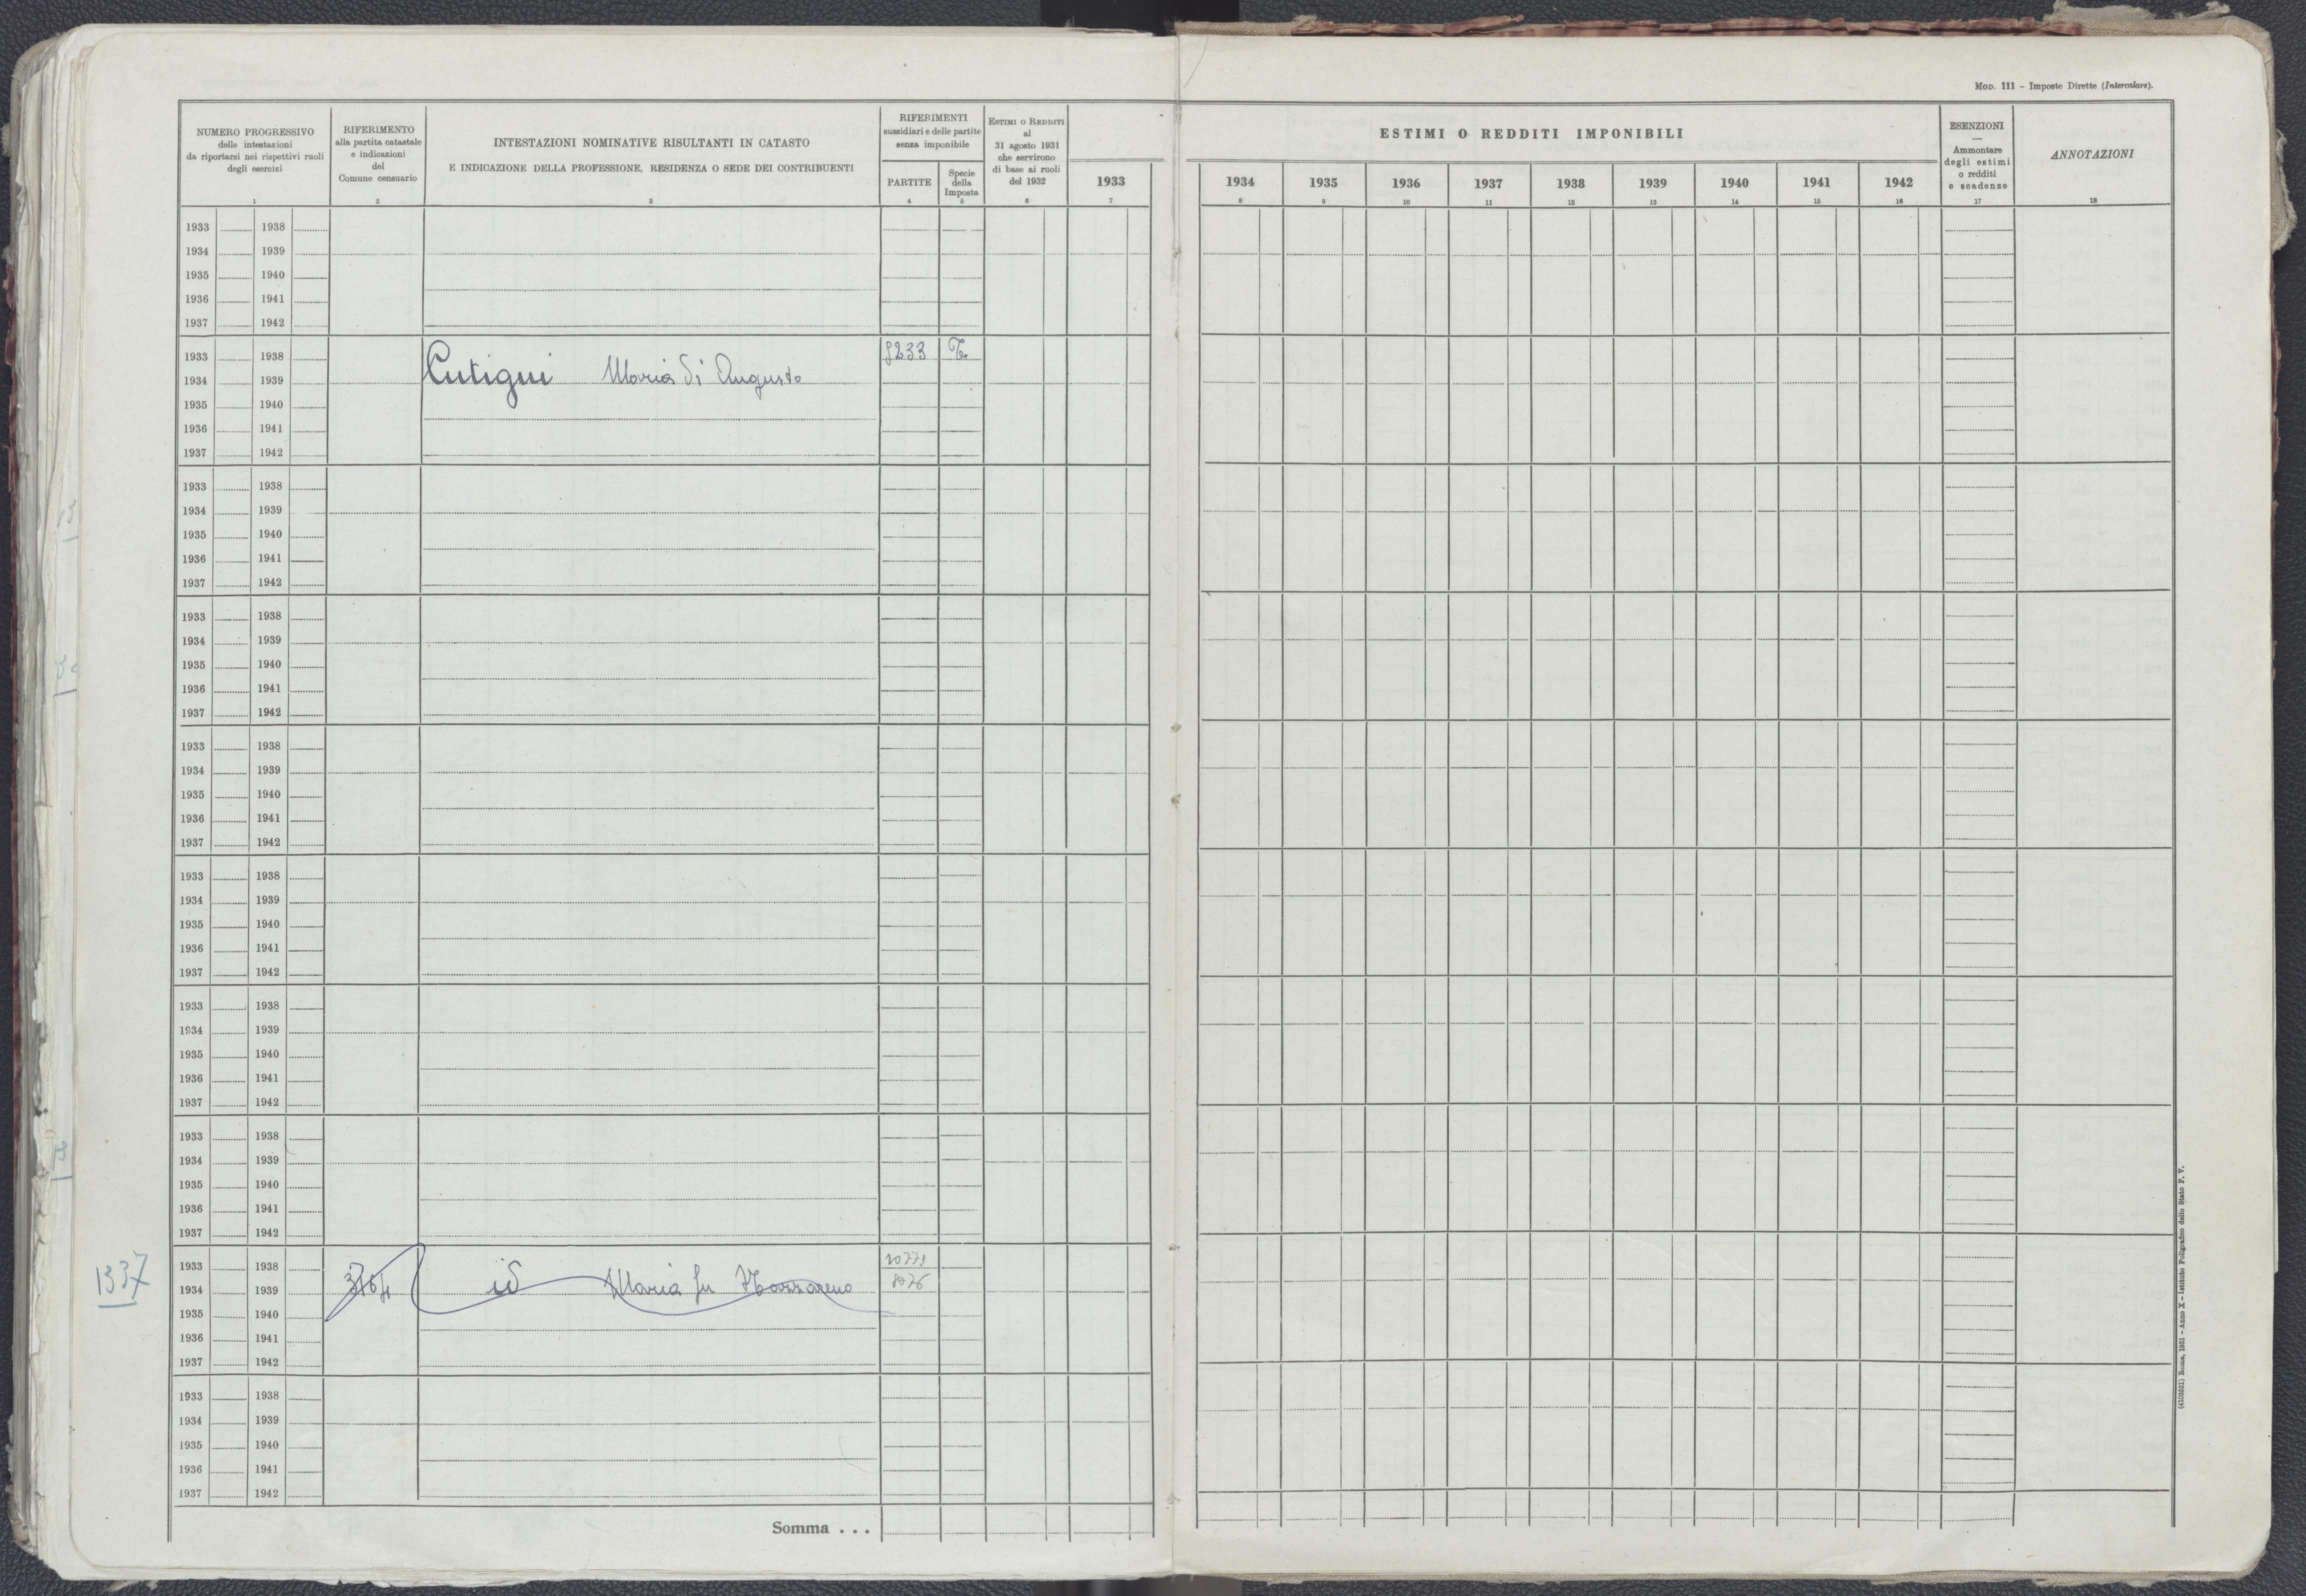 MOD. 111 – Imposte Dirette (Intercalare).
NUMERO PROGRESSIVO
delle intestazioni
da riportarsi nei rispettivi ruoli
degli esercizi
1
RIFERIMENTO
alla partita catastale
e indicazioni
del
Comune censuario
2
INTESTAZIONI NOMINATIVE RISULTANTI IN CATASTO
E INDICAZIONE DELLA PROFESSIONE, RESIDENZA O SEDE DEI CONTRIBUENTI
3
RIFERIMENTI
sussidiari e delle partite
senza imponibile
PARTITE
4
Specie
della
Imposta
5
ESTIMI O REDDITI
al
31 agosto 1931
che servirono
di base ai ruoli
del 1932
6
ESTIMI O REDDITI IMPONIBILI
1933 1934 1935 1936 1937 1938 1939 1940 1941 1942
7 8 9 10 11 12 13 14 15 16
ESENZIONI
—
Ammontare
degli estimi
o redditi
e scadenze
17
ANNOTAZIONI
18
1933 1938
1934 1939
1935 1940
1936 1941
1937 1942
1933 1938 8233 T.
1934 1939 Cutigni Maria di Augusto
1935 1940
1936 1941
1937 1942
1933 1938
1934 1939
1935 1940
1936 1941
1937 1942
1933 1938
1934 1939
1935 1940
1936 1941
1937 1942
1933 1938
1934 1939
1935 1940
1936 1941
1937 1942
1933 1938
1934 1939
1935 1940
1936 1941
1937 1942
1933 1938
1934 1939
1935 1940
1936 1941
1937 1942
1933 1938
1934 1939
1935 1940
1936 1941
1937 1942
1337
1933 1938
1934 1939 id Maria fu Nazzareno 8026
1935 1940
1936 1941
1937 1942
1933 1938
1934 1939
1935 1940
1936 1941
1937 1942
Somma . . .
(4103631) Roma, 1931 – Anno X – Istituto Poligrafico dello Stato P. V.